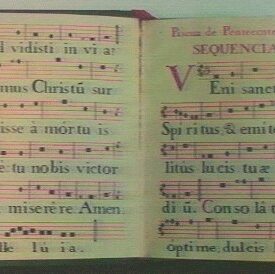 d vidisti in via?
mus Christū sur
isse à mórtu is
è: tu nobis victor
, miserère. Amen.
lle lú ia.
Pascua de Pentecoste
SEQUENCIA
VEni sanct
Spiritus, & emite
litùs lucis tuæ
di ū. Conso lá t
optime, dulcis